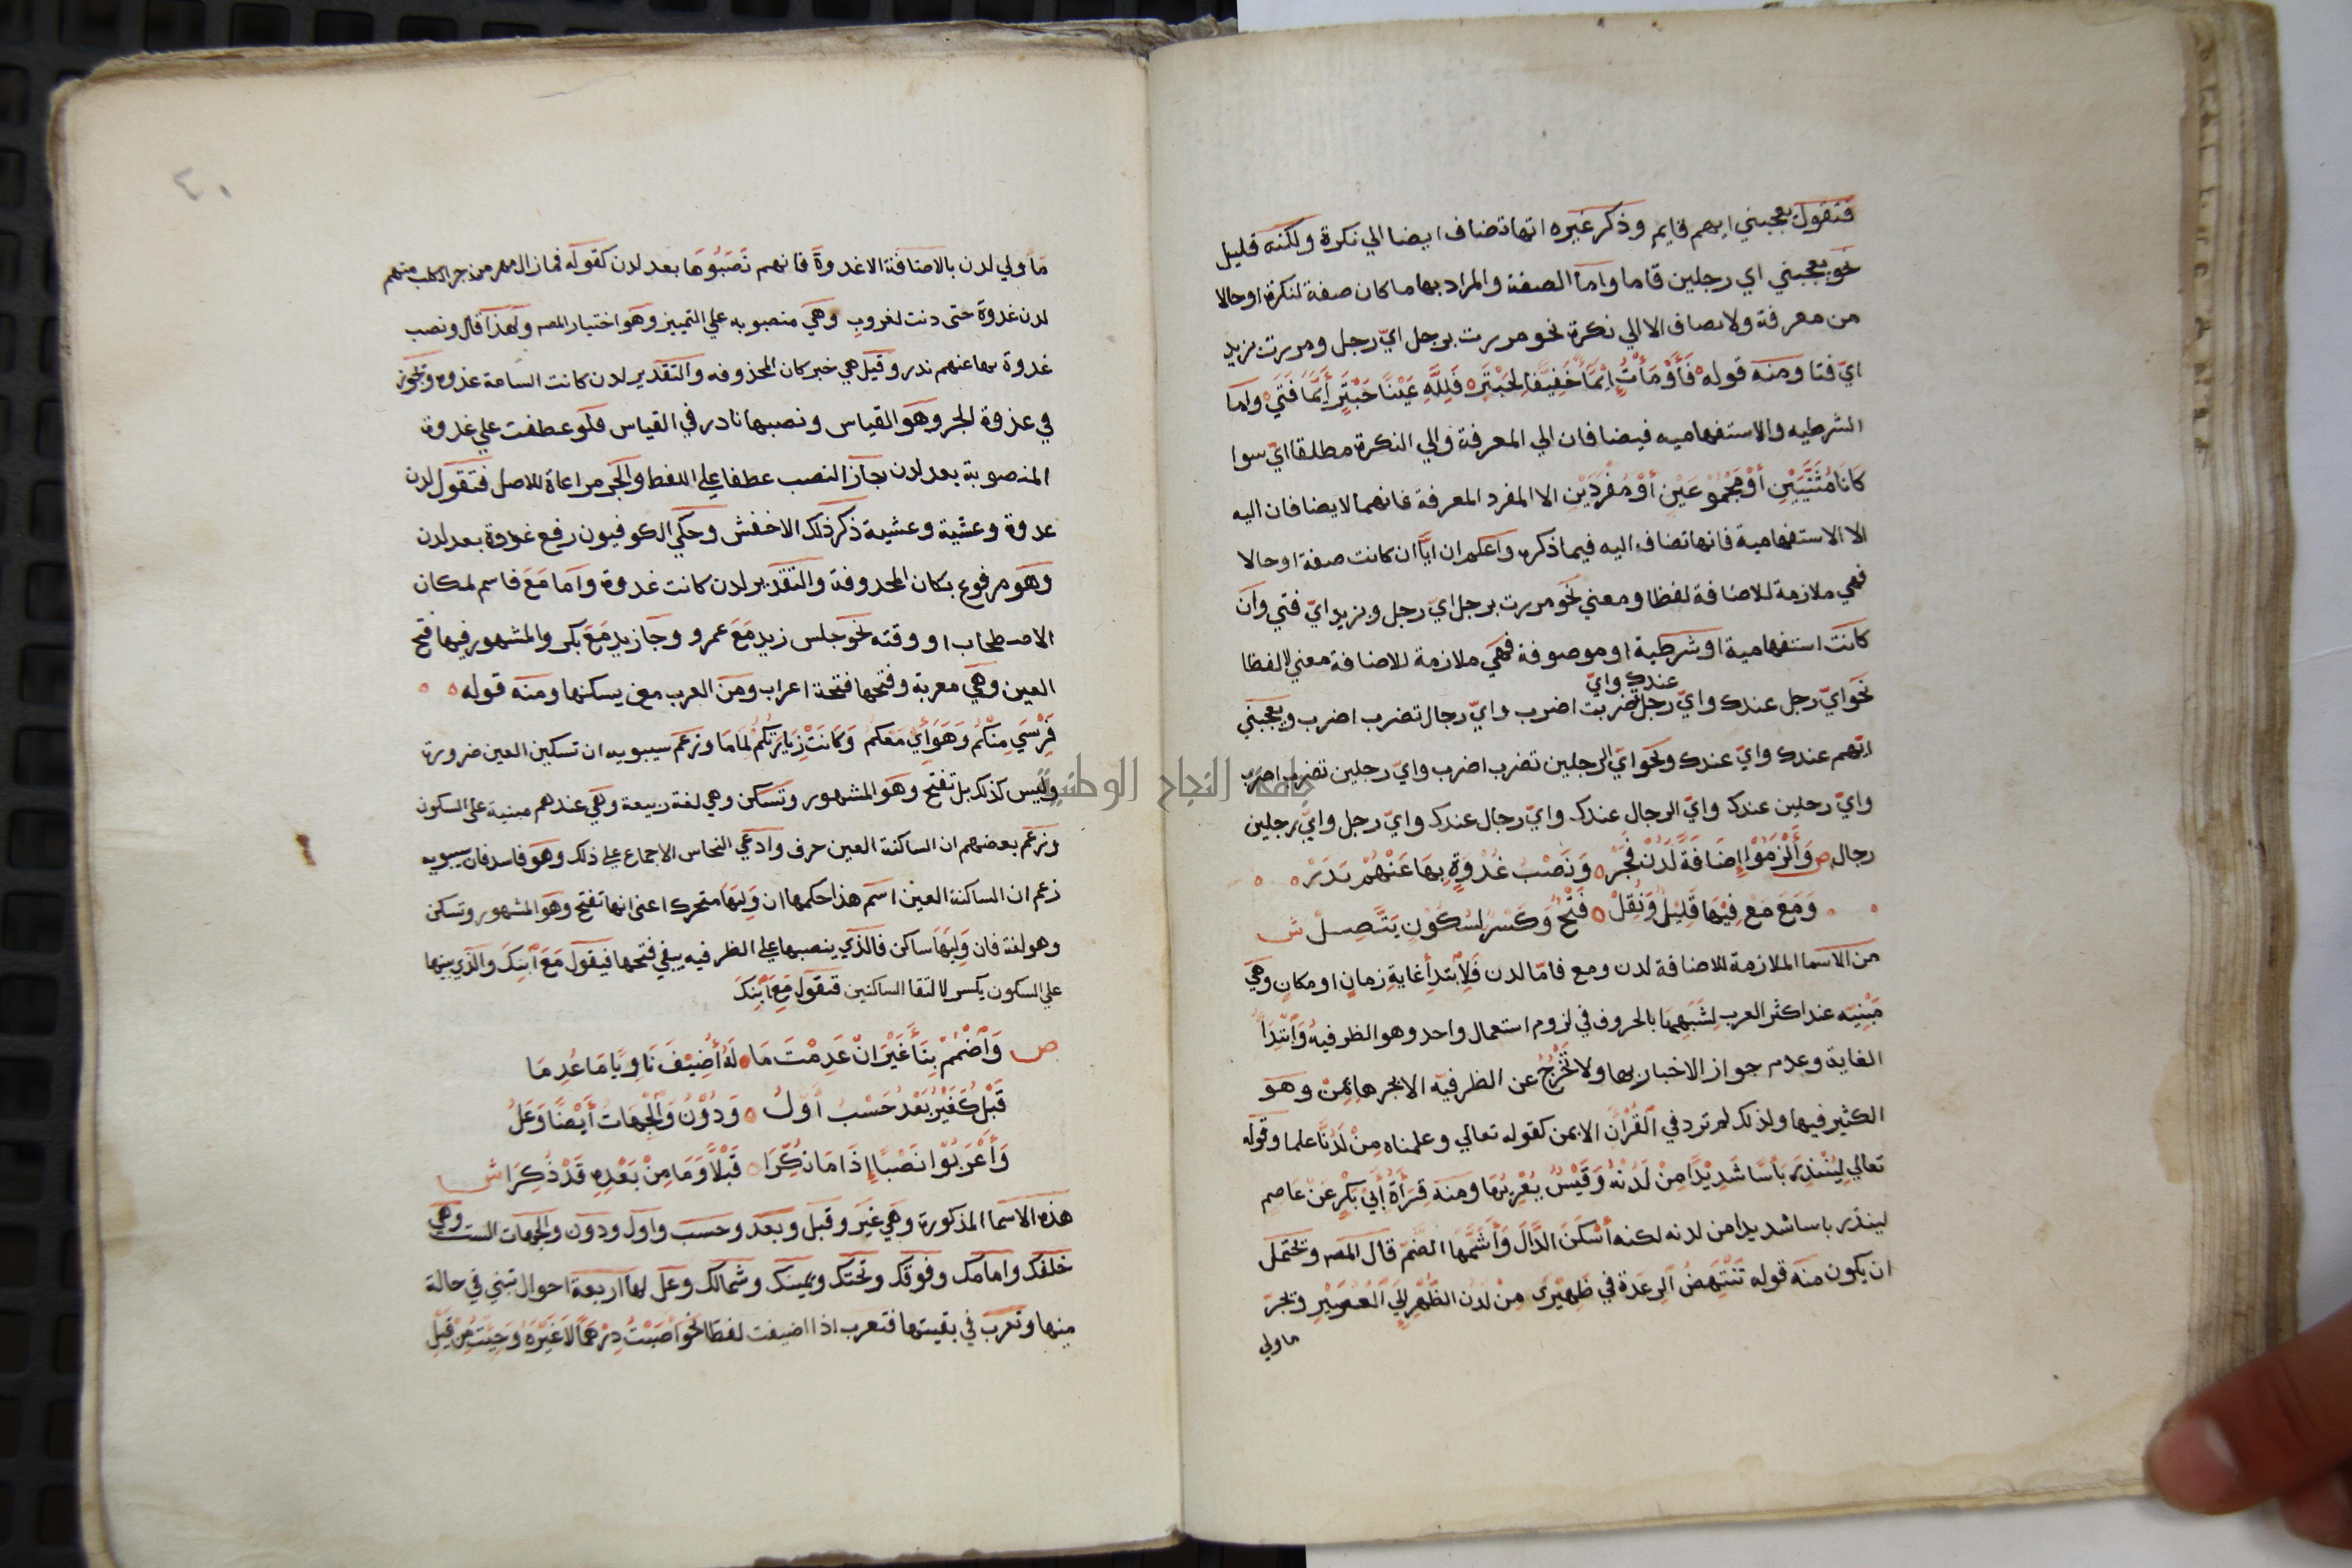 فتقول يعجبني ايهم قايم وذكر غيره انها تضاف ايضا الي نكرة ولكنه قليل
نحو يعجبني اي رجلين قاما واما الصفة والمراد بها ما كان صفة لنكرة او حالا
من معرفة ولا تضاف الا الي نكرة نحو مررت برجل ايّ رجل ومررت بزيد
ايّ فتا ومنه قوله فَأَوْمَأْتُ إِيْمَاً خَفِيَّفًا لِحَبْتَرٍ فَلِلَّهِ عَيْنًا حَبْتَرٍ أَيَّمَا فَتَي واما
الشرطيه والاستفهاميه فيضافان الي المعرفة والي النكرة مطلقا ايّ سوا
كَانَا مُثَنَّيَيْنِ أَوْ مَجْمُوْعَيْنِ أَوْ مُفْرَدَيْنِ الا المفرد المعرفة فانهما لا يضافان اليه
الا الاستفهامية فانها تضاف اليه فيما ذكره واعلم ان ايًّا ان كانت صفة او حالا
فهي ملازمة للاضافة لفظا ومعني نحو مررت برجل ايّ رجل وبزيد ايّ فتي وان
كانت استفهامية او شرطية او موصوفة فهي ملازمة للاضافة معني لا لفظا
عندك وايّ
نحو ايّ رجل عندك وايّ رجل تضربت اضرب وايّ رجال تضرب اضرب ويعجبني
ايّهم عندك وايّ عندك ونحو ايّ الرجلين تضرب اضرب وايّ رجلين تضرب اضرب
وايّ رجلين عندك وايّ الرجال عندك وايّ رجال عندك وايّ رجل وايّ رجلين
رجال ص وَأَلْزَمُوْا إِضَافَةً لَدُنْ فَجَرْ وَنَصْبُ غُدْوَةٍ بِهَا عَنْهُمْ نَدَرْ
وَمَعَ مَعْ فِيْهَا قَلِيْلٌ وَنُقِلْ فَتْحٌ وَكَسْرٌ لِسُكُوْنٍ يَتَّصِلْ ش
من الاسما الملازمة للاضافة لدن ومع فامّا لدن فَلِابْتِدَأِ غايةِ زمانٍ او مكانٍ وهي
مَبْنِيّه عند اكثر العرب لِشَبَهِهَا بالحروف في لزوم استعمال واحد وهو الظرفيه وَابْتِدَأ
الغاية وعدم جواز الاخبار بها ولا تَخْرُجُ عن الظرفيه الا بجرها بِمِنْ وهو
الكثير فيها ولذلك لم ترد في القُرْأَن الا بمن كقوله تعالي وعلمناه مِنْ لَدُنَّا علما وقوله
تعالي لِيُنْذِرَ بَأْسًا شَدِيْدًا مِنْ لَدُنْهُ وَقَيْسٌ يُعْرِبُهَا ومنه قِرَأَةُ أَبِيْ بَكْرٍ عَنْ عَاصِمٍ
لينذر باسا شديدا من لدنه لكنه أَسْكَنَ الدَّالَ وَأَشَمَّهَا الضَّمّ قال المصـ ويحتمل
ان يكون منه قوله تَنْتَهِضُ الرِعْدَةُ في ظُهَيْرِيْ مِنْ لَدُنِ الظُّهْرِ إِلَي العُصَيْرِ ويجرّ
ما ولي
٤٠
مَا ولي لدن بالاضافة الا غدوةَ فانهم نَصَبُوْهَا بعد لدن كقوله فما زال مهري مزجر الكلب منهم
لدن غدوة حتى دنت لغروب وهي منصوبه علي التمييز وهو اختيار المصـ ولهذا قال ونصب
غدوة بها عنهم ندر وقيل هي خبر كان المحذوفه والتقدير لدن كانت الساعة غدوه ويجوز
في غدوة الجر وهو القياس ونصبها نادر في القياس فلو عطفت علي غدوة
المنصوبة بعد لدن جاز النصب عطفا علي اللفظ والجر مراعاة للاصل فتقول لدن
غدوة وعشية وعشية ذكر ذلك الاخفش وحكي الكوفيون رفع غدوة بعد لدن
وهو مرفوع بكان المحدوفة والتقدير لدن كانت غدوة واما مَعَ فاسم لمكان
الاصطحاب او وقته نحو جلس زيد مَعَ عمرو وجا زيد مَعَ بكر والمشهور فيها فتح
العين وهي معربة وفتحها فتحة اعراب ومن العرب من يسكنها ومنه قوله
فَرِشِيْ مِنْكُمُ وَهَوَأْيَ مَعْكُمُ وَكَانَتْ زِيَارَتُكُمْ لِمَامَا وزعم سيبويه ان تسكين العين ضرورة
وليس كذلك بل تفتح وهو المشهور وتسكن وهي لغة ربيعة وهي عندهم مبنية على السكون
وزعم بعضهم ان الساكنة العين حرف وادعي النحاس الاجماع علي ذلك وهو فاسد فان سيبويه
زعم ان الساكنة العين اسم هذا حكمها ان وَلِيَهَا متحرك اعني انها تفتح وهو المشهور وتسكن
وهو لغة فان وَلِيَهَا ساكن فالذي ينصبها علي الظرفيه يبقي فتحها فيقول مَعَ ابْنِكَ والذي يبنيها
علي السكون يكسر لالتقا الساكنين فتقول مَعِ ابْنِكَ
ص وَاضْمُمْ بِنَأً غَيْرًا انْ عَدِمْتَ مَا لَهُ أُضِيْفَ نَاوِيًا مَا عُدِمَا
قَبْلُ كَغَيْرُ بَعْدُ حَسْبُ أَوَّلُ وَدُوْنُ وَالْجِهَاتُ أَيْضًا وَعَلُ
وَأَعْرَبُوْا نَصْبًا إِذَا مَا نُكِّرَا قَبْلًا وَمَا مِنْ بَعْدِهِ قَدْ ذُكِرَا ش
هذه الاسما المذكورة وهي غير وقبل وبعد وحسب واول ودون والجهات الست وهي
خلفك وامامك وفوقك وتحتك ويمينك وشمالك وعل لها اربعة احوال تبني في حالة
منها وتعرب في بقيتها فتعرب اذا اضيفت لفظا نحو اصَبْتُ دِرْهَمًا لَا غَيْرَهُ وَجِئْتُ مِنْ قَبْلِ
جامعة النجاح الوطنية